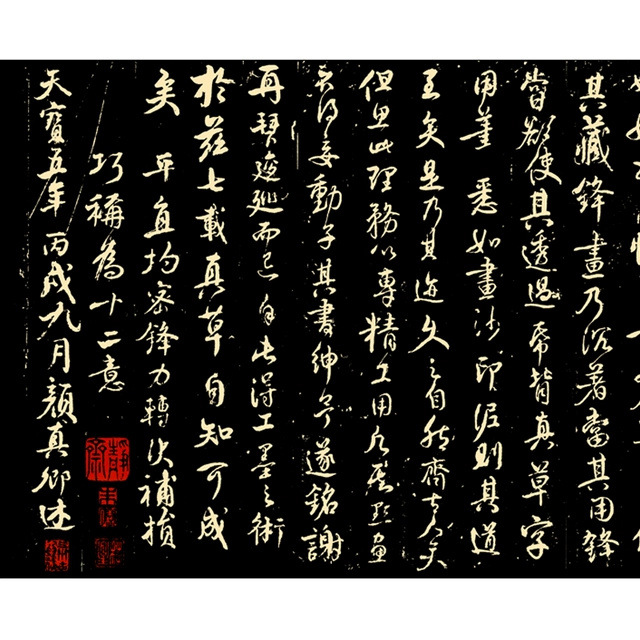 其藏鋒畫乃沉著當其用鋒
常欲使其透過帋背真草字
用筆悉如畫沙印泥則其道
至矣是乃其迹久之自然齊古人矣
但思此理務以專精工用點畫
不得妄動子其書紳予遂銘謝
再拜逡巡而已自此得工墨之術
於茲七載真草自知可成
矣 平直均密鋒力轉決補損
巧稱為十二意
天寶五年丙戌九月顏真卿述